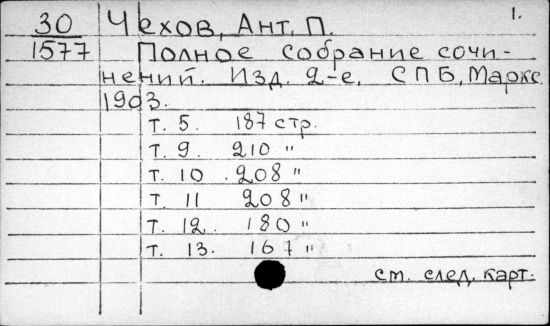 30 Чехов, Ант. П. 1.
1577 Полное собрание сочи-
нений. Изд. 2-е. СПБ, Маркс
1903.
т. 5. 187 стр.
т. 9. 210 "
т. 10. 208 "
т. 11 208 "
т. 12. 180 "
т. 13. 167 "
см. след. карт.